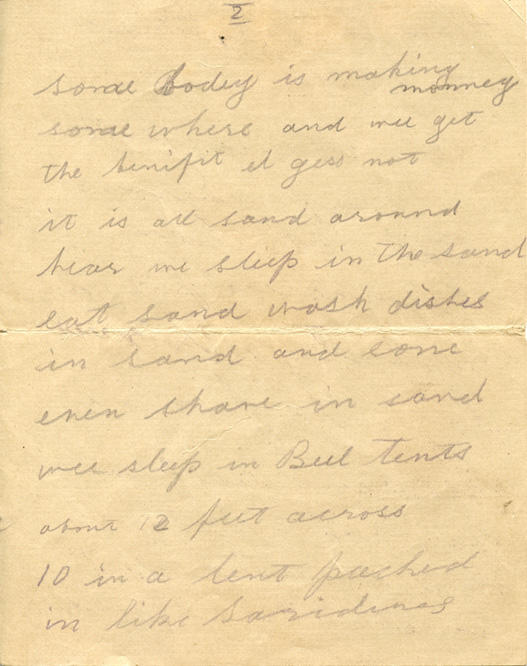 2
some bodey is making monney
some where and wee get
the binifit I gess not
it is all sand around
hear we sleep in the sand
eat sand wash dishes
in sand and some
even shave in sand
wee sleep in Bell tents
about 12 feet across
10 in a tent packed
in like Saridines